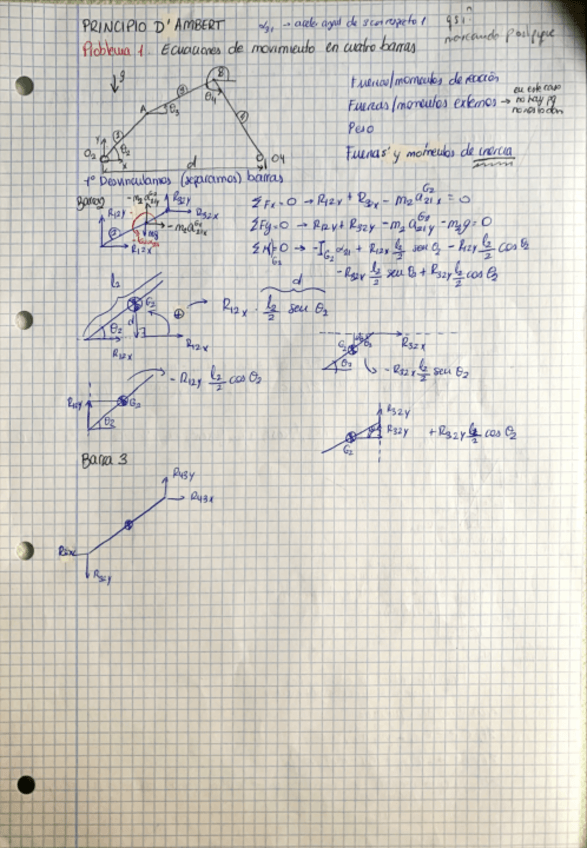 PRINCIPIO D'AMBERT
α31 → acele agul de 3 con respecto 1
Problema 1. Ecuaciones de movimiento en cuatro barras
g
A
B
θ3
θ4
θ2
O2
O4
x
d
Fuerzas/momentos de reacción
Fuerzas/momentos externos → en este caso no hay pq no nos lo dan
Peso
Fuerzas y momentos de inercia
1º Desvinculamos (separamos) barras
Barra 2
R12y
R12x
R32y
R32x
ΣFx = 0 → R12x + R32x - m2 a21x^G2 = 0
ΣFy = 0 → R12y + R32y - m2 a21y^G2 - m2g = 0
ΣM G2 = 0 → -IG2 α21 + R12x l2/2 sen θ2 - R12y l2/2 cos θ2
- R32x l2/2 sen θ2 + R32y l2/2 cos θ2
l2
G2
θ2
d
R12x
R12x
R12x · l2/2 sen θ2
d
G2
θ2
R32x
- R32x l2/2 sen θ2
R12y
G2
θ2
- R12y l2/2 cos θ2
R32y
R32y
G2
+ R32y l2/2 cos θ2
Barra 3
R43y
R43x
R32x
R32y